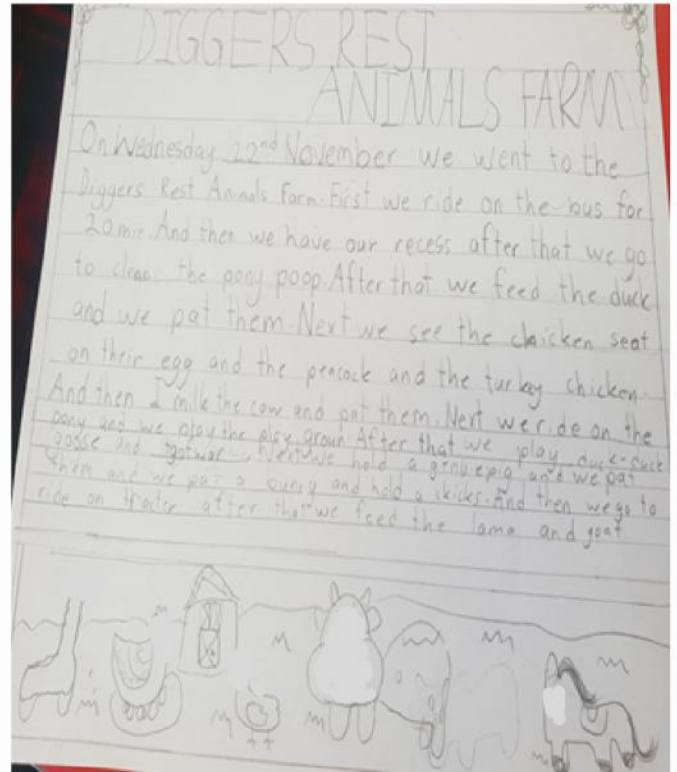 DIGGERS REST
ANIMALS FARM
On Wednesday 22nd November we went to the
Diggers Rest Animals Farm. First we ride on the bus for
20 min. And then we have our recess after that we go
to clean the pony poop. After that we feed the duck
and we pat them. Next we see the chicken seat
on their egg and the peacock and the turkey chicken.
And then I milk the cow and pat them. Next we ride on the
pony and we play the play groun. After that we play duck-duck
goose and Next we hold a genuepig and we pat
them and we pat a bunny and hold a And then we go to
ride on tracter after that we feed the lama and goat